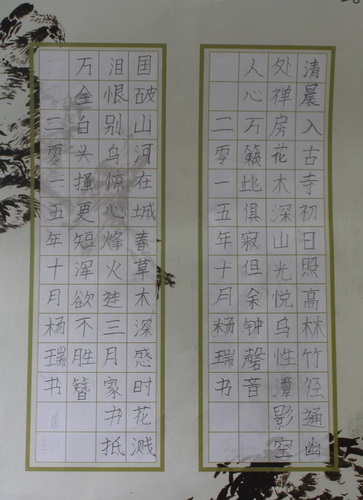 清晨入古寺初日照高林竹径通幽
处禅房花木深山光悦鸟性潭影空
人心万籁此俱寂但余钟磬音
二零一五年十月杨瑞书
国破山河在城春草木深感时花溅
泪恨别鸟惊心烽火连三月家书抵
万金白头搔更短浑欲不胜簪
二零一五年十月杨瑞书